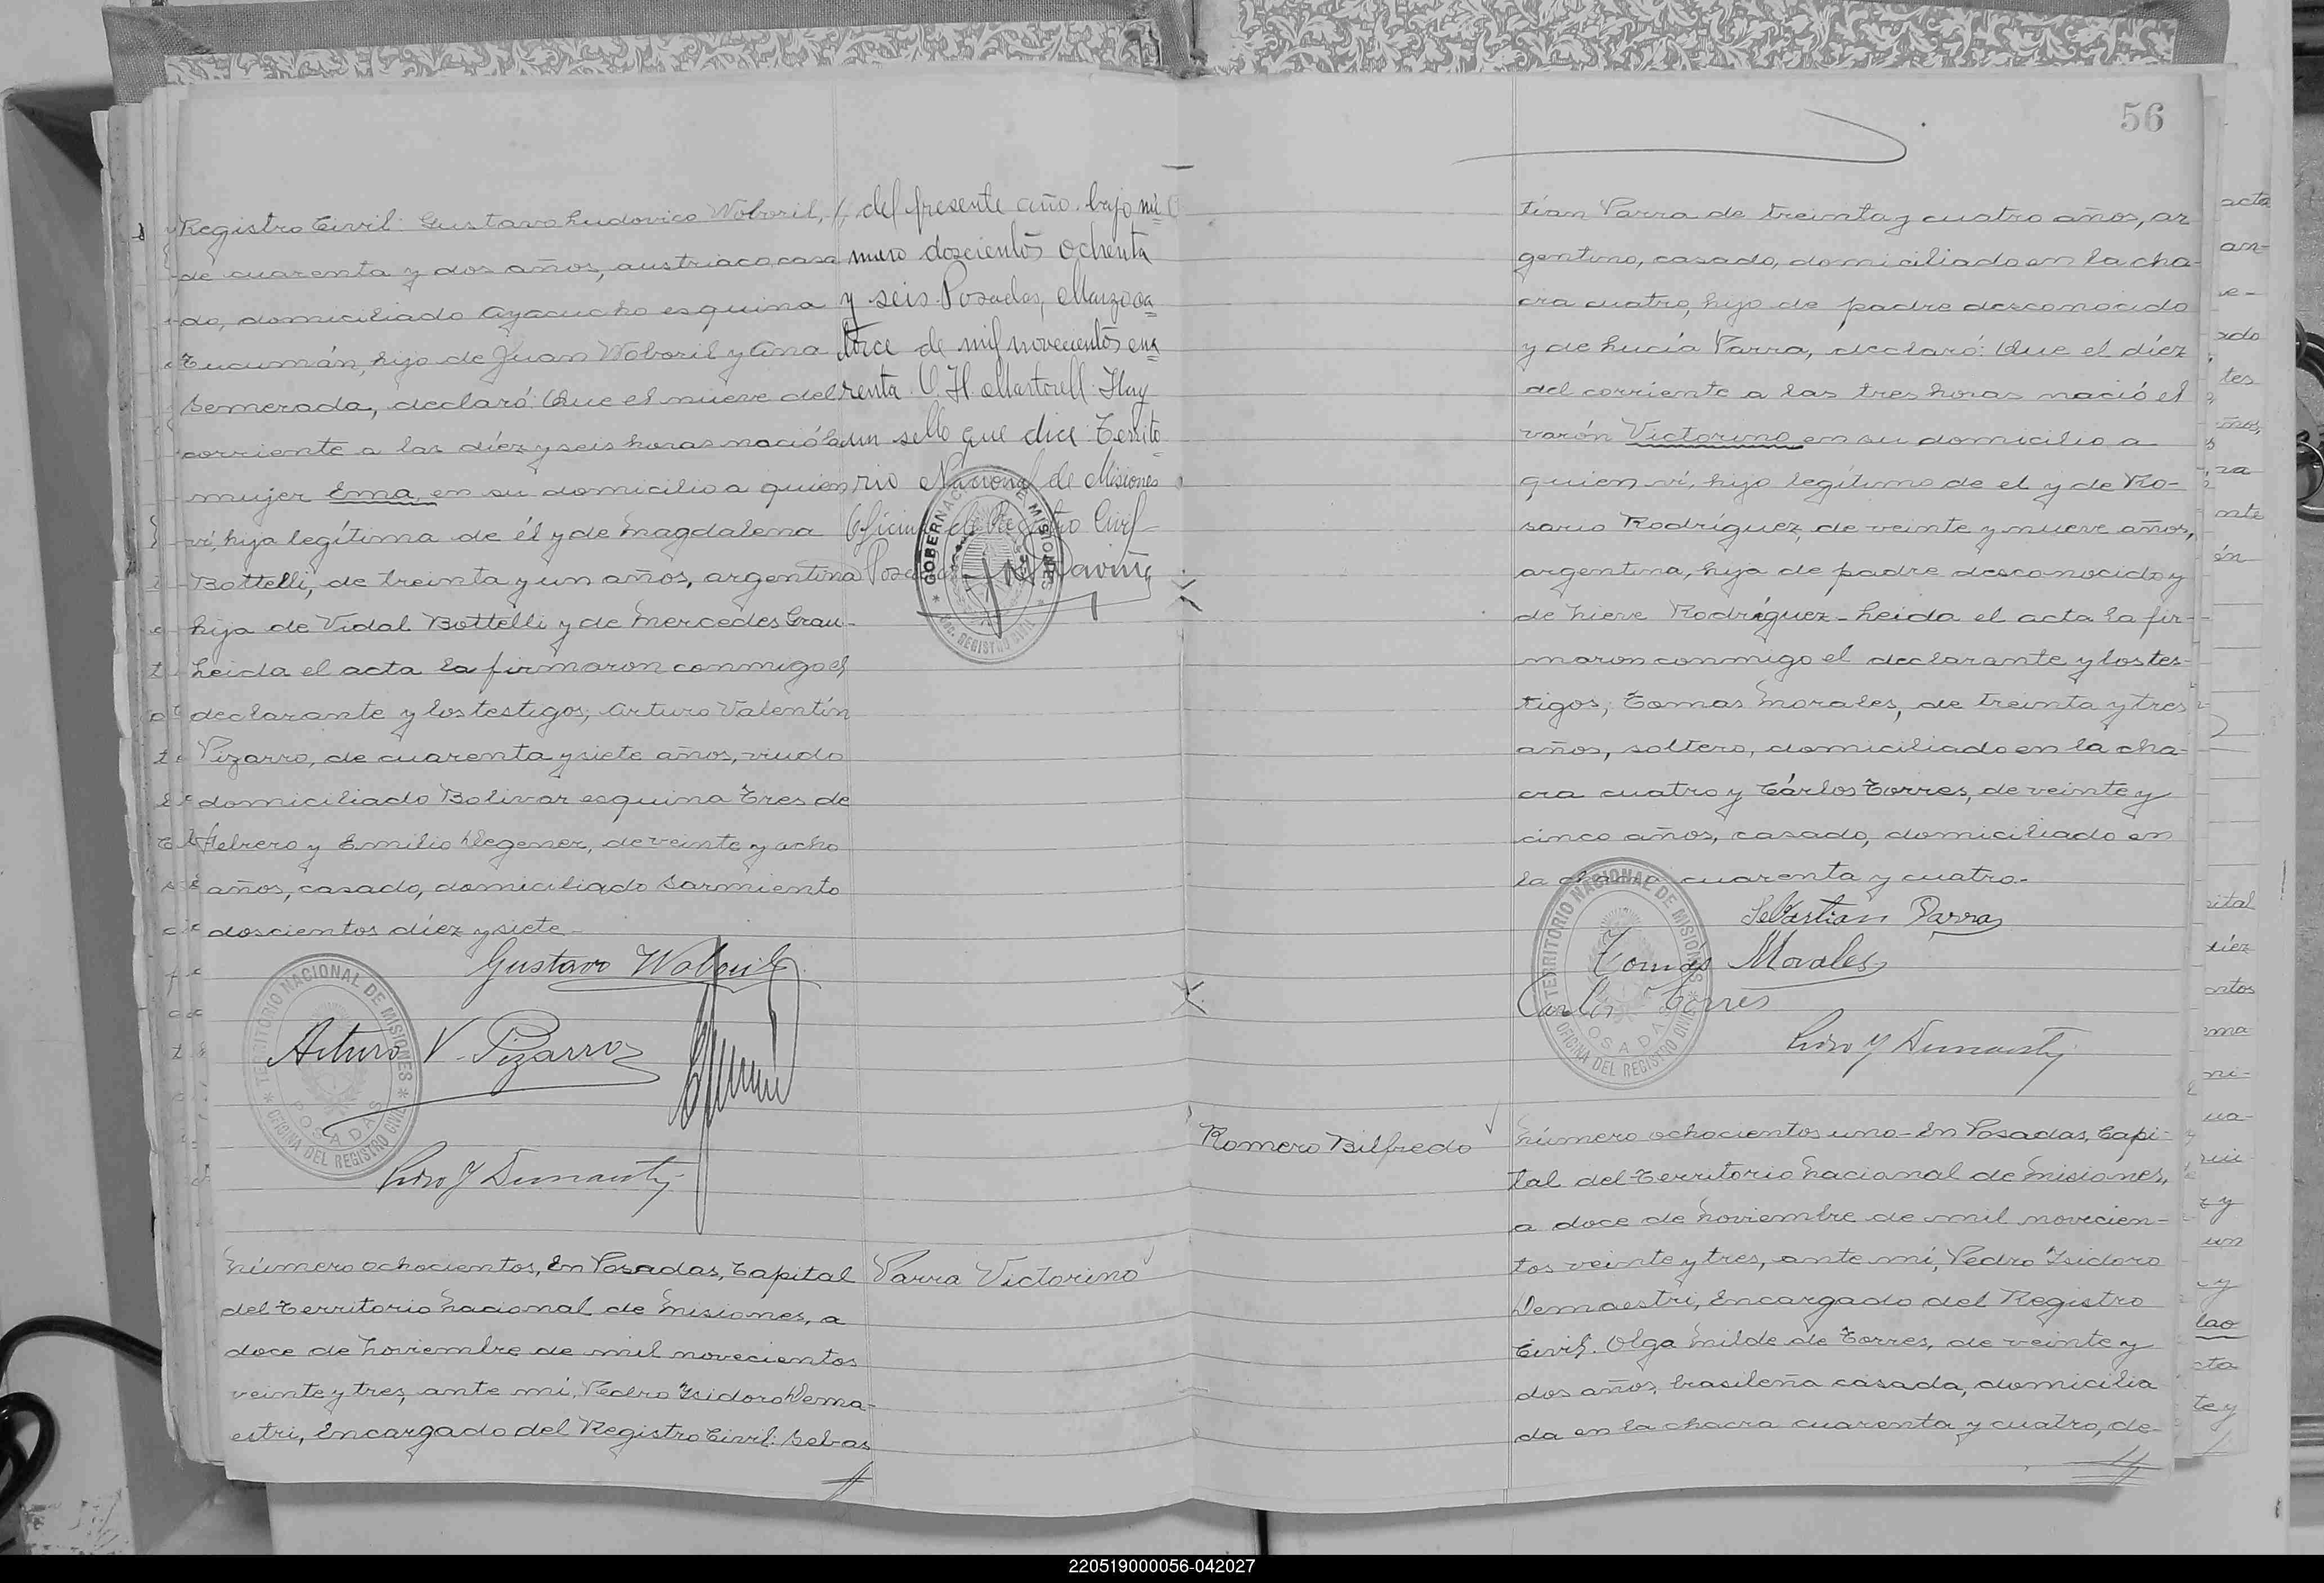 Registro Civil: Gustavo Ludovico Woboril,
de cuarenta y dos años, austriaco, casa
do, domiciliado Ayacucho esquina
Tucumán, hijo de Juan Woboril y Ana
Semerada, declaró: Que el nueve del
corriente a las diéz y seis horas nació la
mujer Ema, en su domicilio a quien
ví, hija legítima de él y de Magdalena
Bottelli, de treinta y un años, argentina
hija de Vidal Bottelli y de Mercedes Grau-
Leida el acta la firmaron conmigo el
declarante y los testigos, Arturo Valentín
Pizarro, de cuarenta y siete años, viudo
domiciliado Bolivar esquina Tres de
Febrero y Emilio Wegener, de veinte y ocho
años, casado, domiciliado Sarmiento
doscientos diéz y siete-
Gustavo Woboril
Arturo V. Pizarro
TERRITORIO NACIONAL DE MISIONES
POSADAS
OFICINA DEL REGISTRO CIVIL
Pedro Y Demaestri
Número ochocientos, En Posadas, Capital
del Territorio Nacional de Misiones, a
doce de Noviembre de mil novecientos
veinte y tres, ante mí, Pedro Isidoro Dema-
estri, Encargado del Registro Civil: Sebas
del presente año bajo nú
mero doscientos ochenta
y seis. Posadas, Marzo ca
torce de mil novecientos cua
renta. C. H. Martorell. Hay
un sello que dice: Territo
rio Nacional de Misiones
Oficina de Registro Civil
GOBERNACION DE MISIONES
REGISTRO CIVIL
Parra Victorino
56
tían Parra de treinta y cuatro años, ar
gentino, casado, domiciliado en la cha-
cra cuatro, hijo de padre desconocido
y de Lucía Parra, declaró: Que el diéz
del corriente a las tres horas nació el
varón Victorino en su domicilio a
quien ví, hijo legítimo de el y de Ro-
sario Rodríguez, de veinte y nueve años,
argentina, hija de padre desconocido y
de Nieve Rodríguez- Leida el acta la fir-
maron conmigo el declarante y los tes-
tigos, Tomas Morales, de treinta y tres
años, soltero, domiciliado en la cha-
cra cuatro y Cárlos Torres, de veinte y
cinco años, casado, domiciliado en
la chacra cuarenta y cuatro-
Sebastian Parra
Tomás Morales
Carlos Torres
TERRITORIO NACIONAL DE MISIONES
POSADAS
OFICINA DEL REGISTRO CIVIL
Pedro Y Demaestri
Romero Bilfredo
Número ochocientos uno- En Posadas, Capi-
tal del Territorio Nacional de Misiones,
a doce de Noviembre de mil novecien-
tos veinte y tres, ante mí, Pedro Isidoro
Demaestri, Encargado del Registro
Civil. Olga Milde de Torres, de veinte y
dos años, brasileña casada, domicilia
da en la chacra cuarenta y cuatro, de-
220519000056-042027